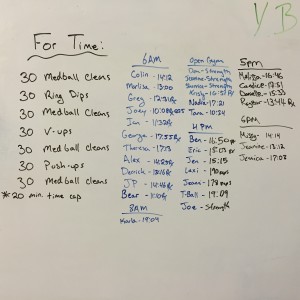 VB
For Time:
30 Medball Cleans
30 Ring Dips
30 Medball Cleans
30 V-ups
30 Medball Cleans
30 Push-ups
30 Medball Cleans
*20 min. time cap
6AM
Colin - 14:12
Marlisa - 13:20
Greg - 12:31Rx
Joey
Jan - 11:32Rx
George - 17:35Rx
Theresa - 17:03
Alex
Derrick
JP - 14:46Rx
Bear
8AM
Kayla - 19:09
Open Gym
Dan - Strength
Jeanne - Strength
Sumra - Strength
Kristy - 16:51Rx
Nadia - 17:21
Tara - 10:24
4PM
Ben - 16:50
Eric - 15:03
Jen - 15:15
Lexi - 190 reps
Jenna - 178 reps
T-Ball - 19:09
Joe - Strength
5pm
Melissa - 16:46
Candice - 17:51
Danielle - 15:33
6PM
Missy - 14:14
Jeannie - 13:12
Jessica - 17:03